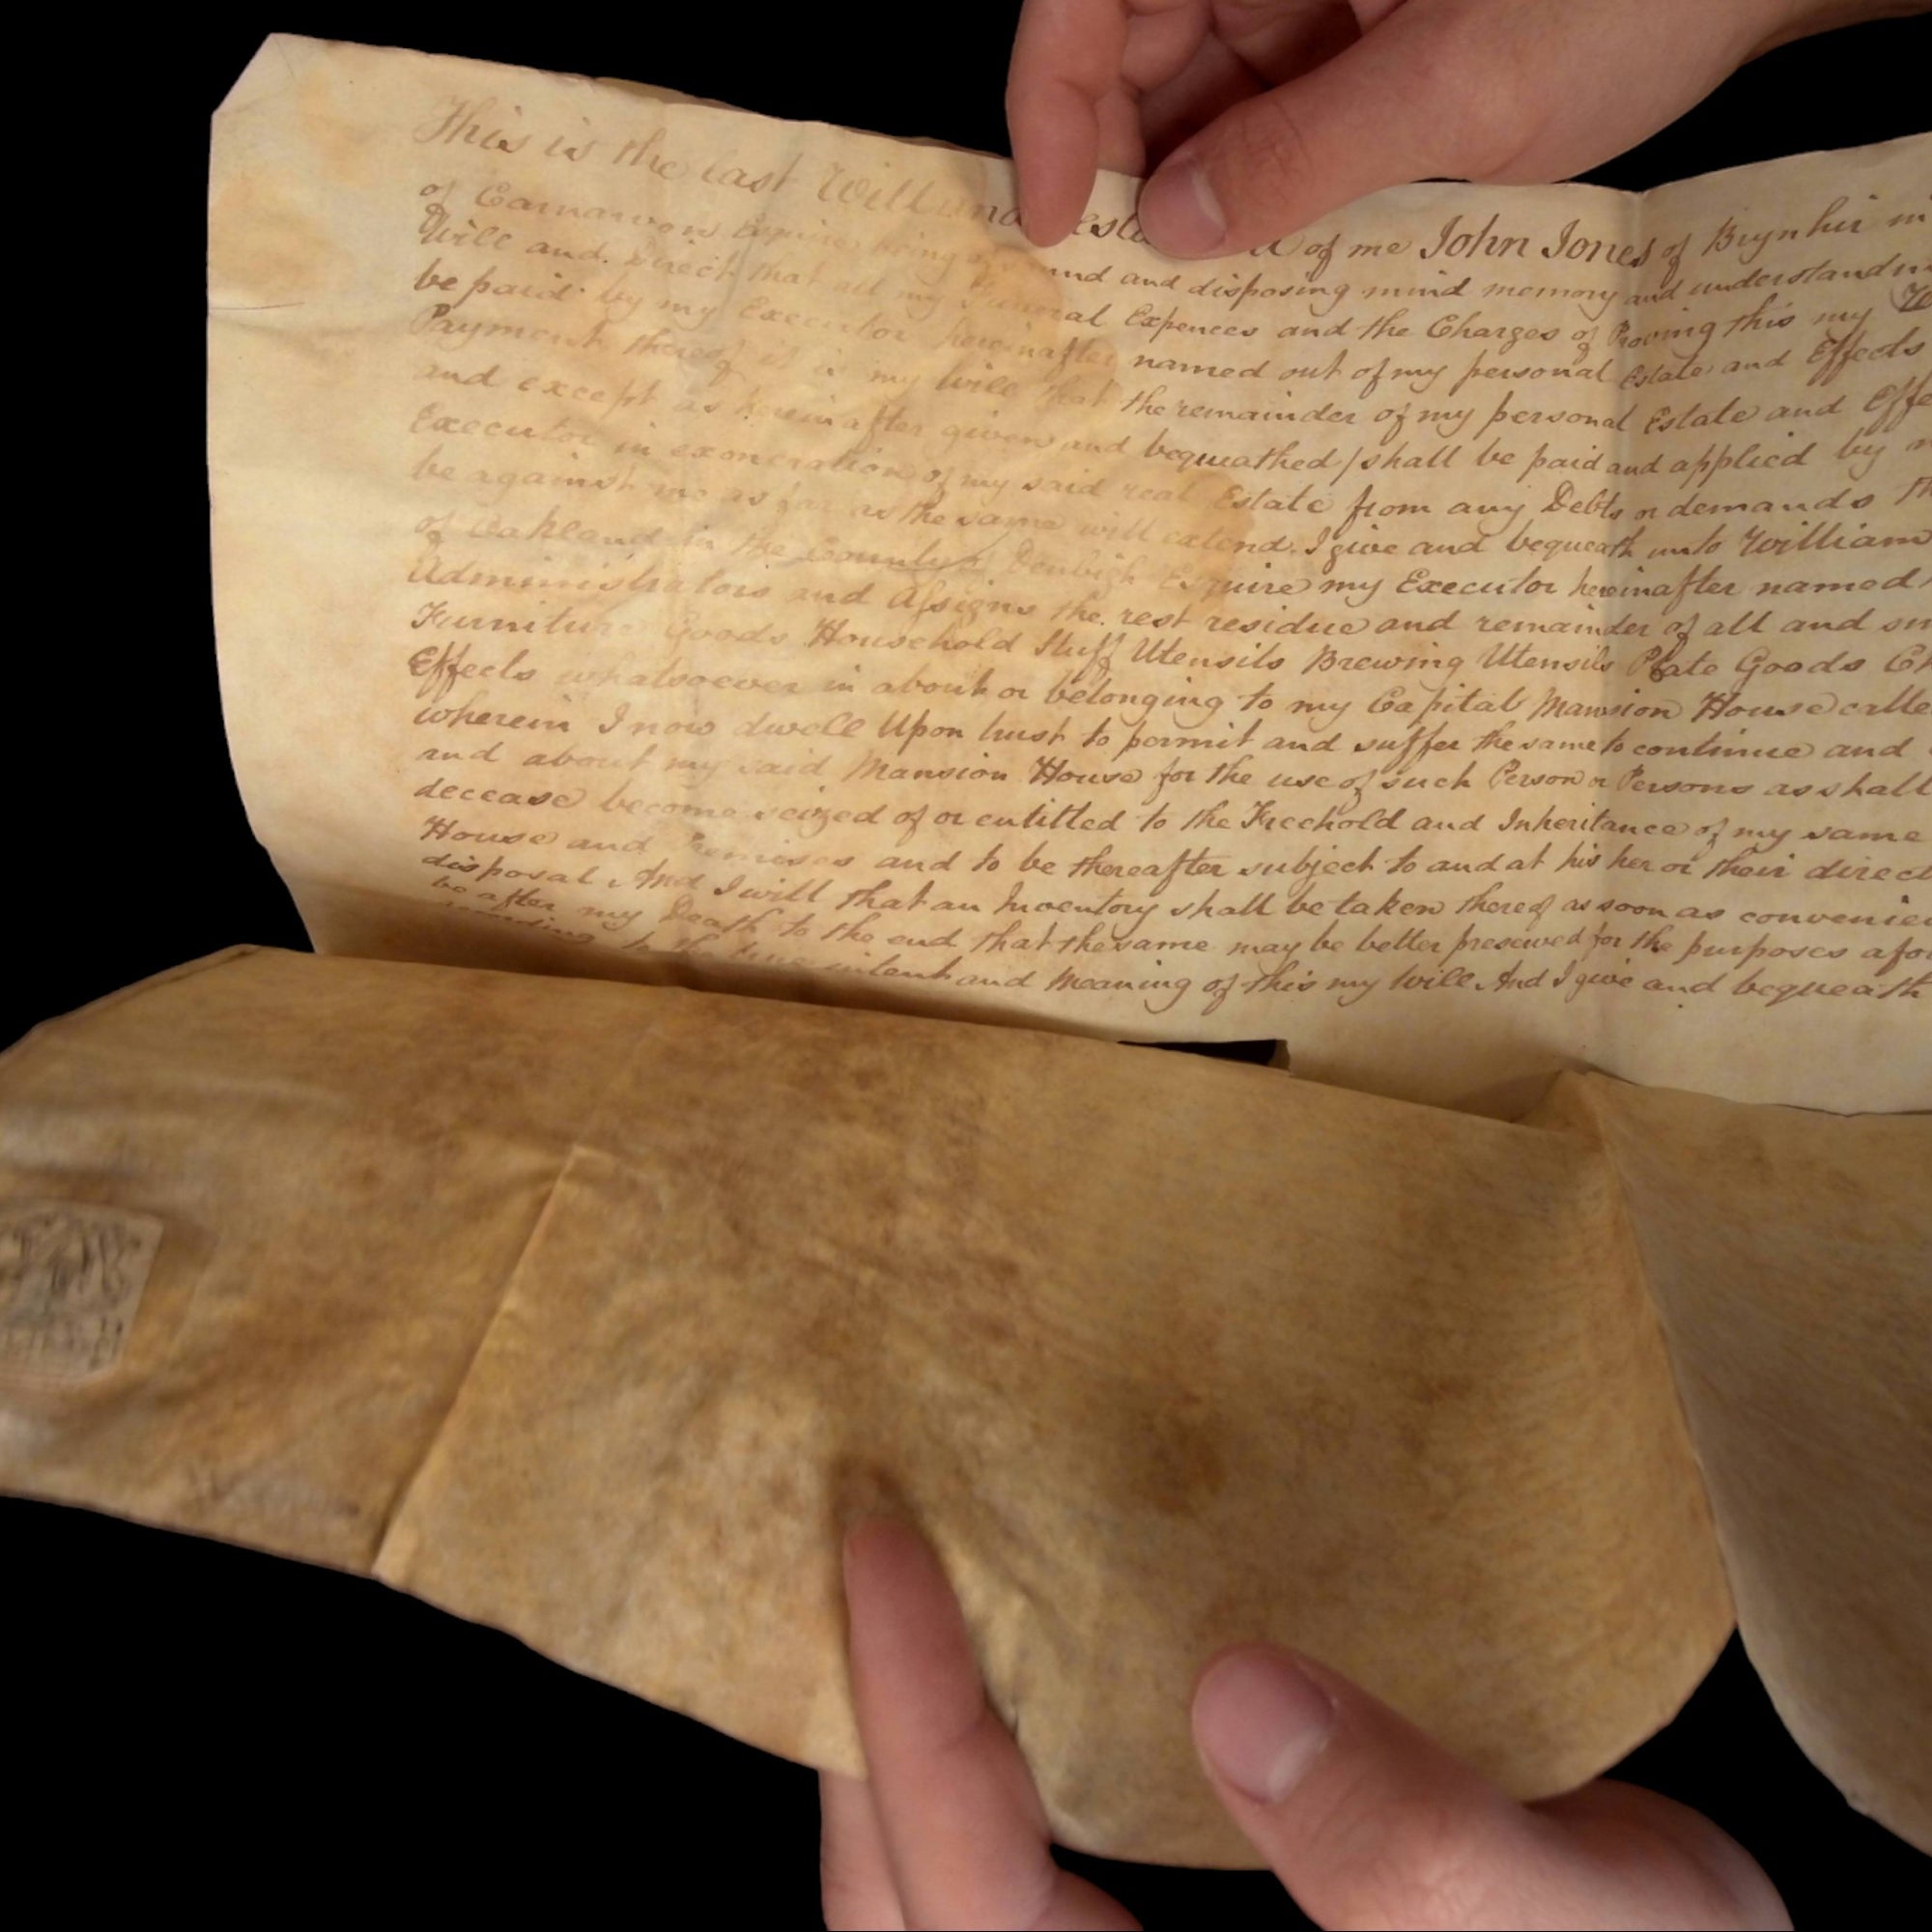 This is the last Will and of me John Jones of Brynhir in
of Carnarvon Esquire being of and disposing mind memory and
Will and Direct that all my Funeral Expences and the Charges of Proving this my
be paid by my Executor hereinafter named out of my personal Estate and Effects
Payment thereof it is my Will that the remainder of my personal Estate and
and except as hereinafter given and bequeathed / shall be paid and applied by
Executor in exoneration of my said real Estate from any Debts or demands
be against me as far as the same will extend. I give and bequeath unto William
of Oakland in the County of Denbigh Esquire my Executor hereinafter named
Administrators and Assigns the rest residue and remainder of all and
Furniture Goods Household Stuff Utensils Brewing Utensils Plate Goods
Effects whatsoever in about or belonging to my Capital Mansion House
wherein I now dwell Upon trust to permit and suffer the same to continue and
and about my said Mansion House for the use of such Person or Persons as shall
decease become seized of or entitled to the Freehold and Inheritance of my same
House and Premises and to be thereafter subject to and at his her or their
disposal And I will that an Inventory shall be taken thereof as soon as
be after my Death to the end that the same may be better preserved for the purposes
according to the true intent and Meaning of this my Will. And I give and bequeath